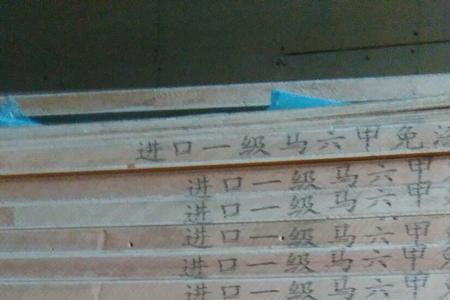 进口一级马六甲免
进口一级马六甲
进口一级马六甲
进口一级马六甲
进口一级马六甲
进口一级马六